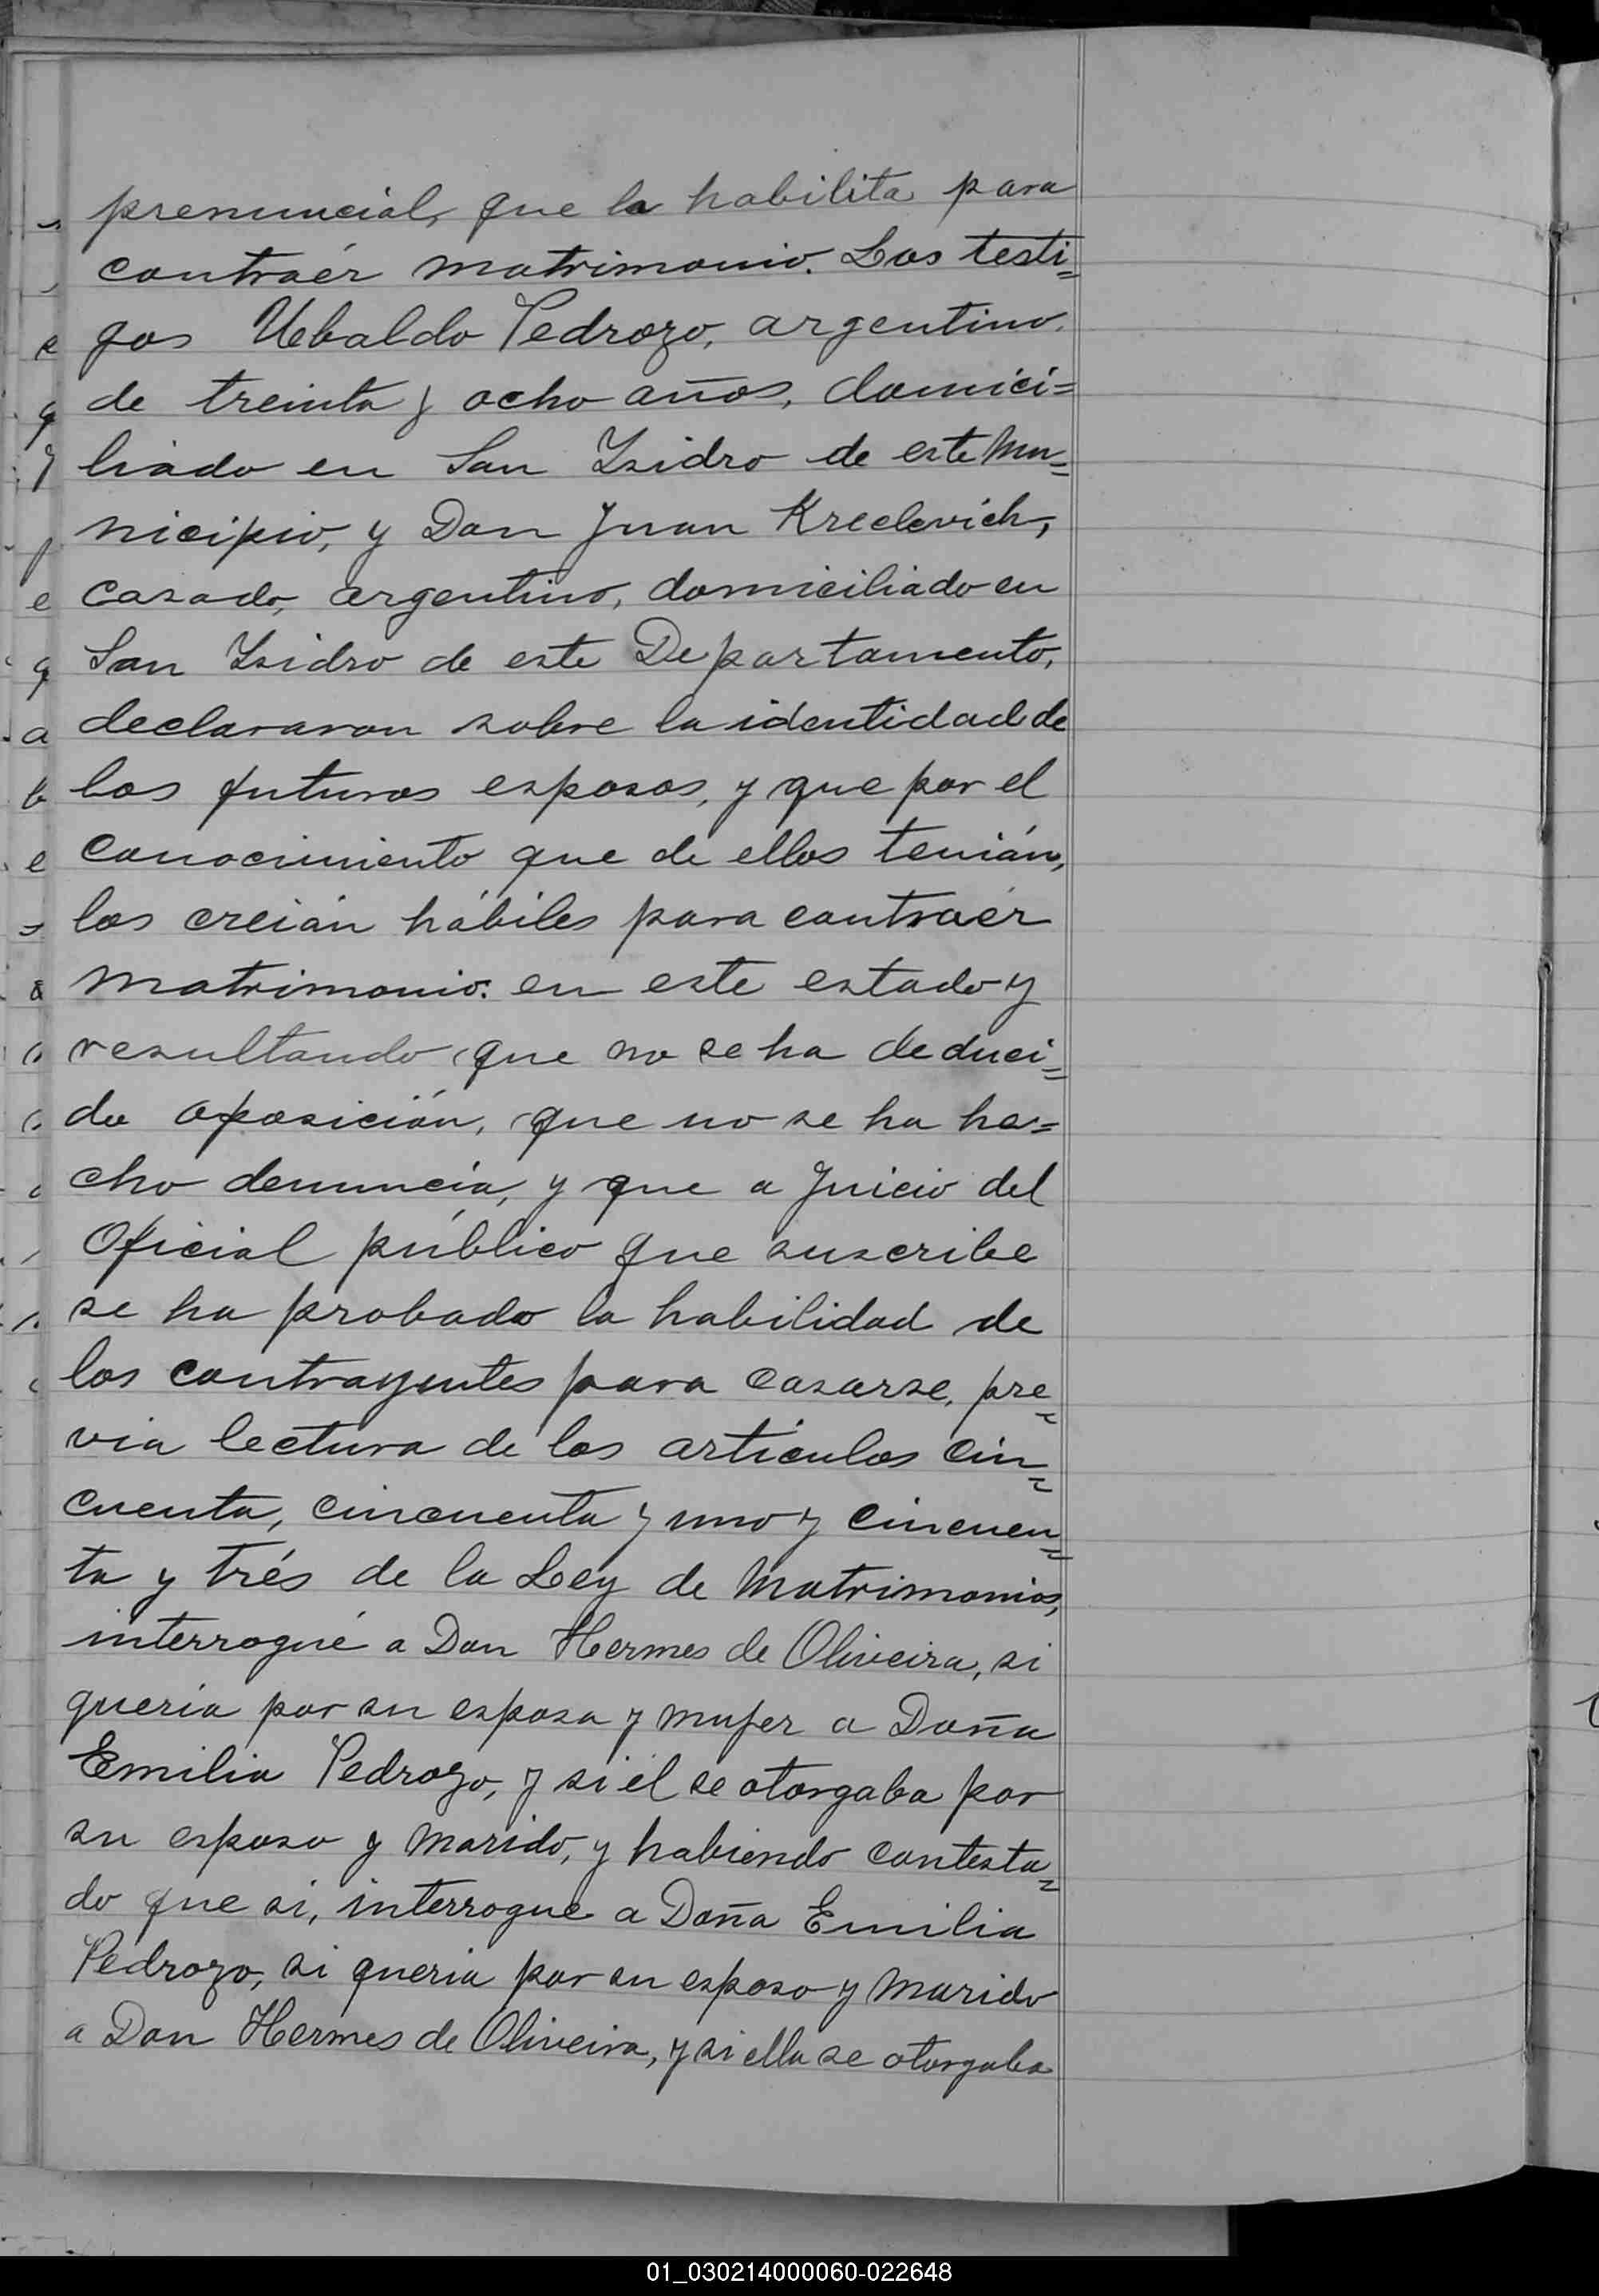 prenuncial, que la habilita para
contraér matrimonio. Los testi=
gos Ubaldo Pedrozo, argentino.
de treinta y ocho años, domici=
liado en San Isidro de este Mu=
nicipio, y Don Juan Kreclevich,
casado, argentino, domiciliado en
San Isidro de este Departamento,
declararon sobre la identidad de
los futuros esposos, y que por el
conocimiento que de ellos tenián,
los creián hábiles para contraér
matrimonio. en este estado y
resultando que no se ha deduci=
do oposición, que no se ha he=
cho denuncia, y que a Juicio del
Oficial público que suscribe
se ha probado la habilidad de
los contrayentes para casarse, pre=
via lectura de los artículos cin=
cuenta, cincuenta y uno y cincuen=
ta y trés de la Ley de Matrimonios,
interrogué a Don Hermes de Oliveira, si
queria por su esposa y mujer a Doña
Emilia Pedrozo, y si él se otorgaba por
su esposo y marido, y habiendo contesta=
do que si, interrogue a Doña Emilia
Pedrozo, si queria por su esposo y marido
a Don Hermes de Oliveira, y si ella se otorgaba
01_030214000060-022648